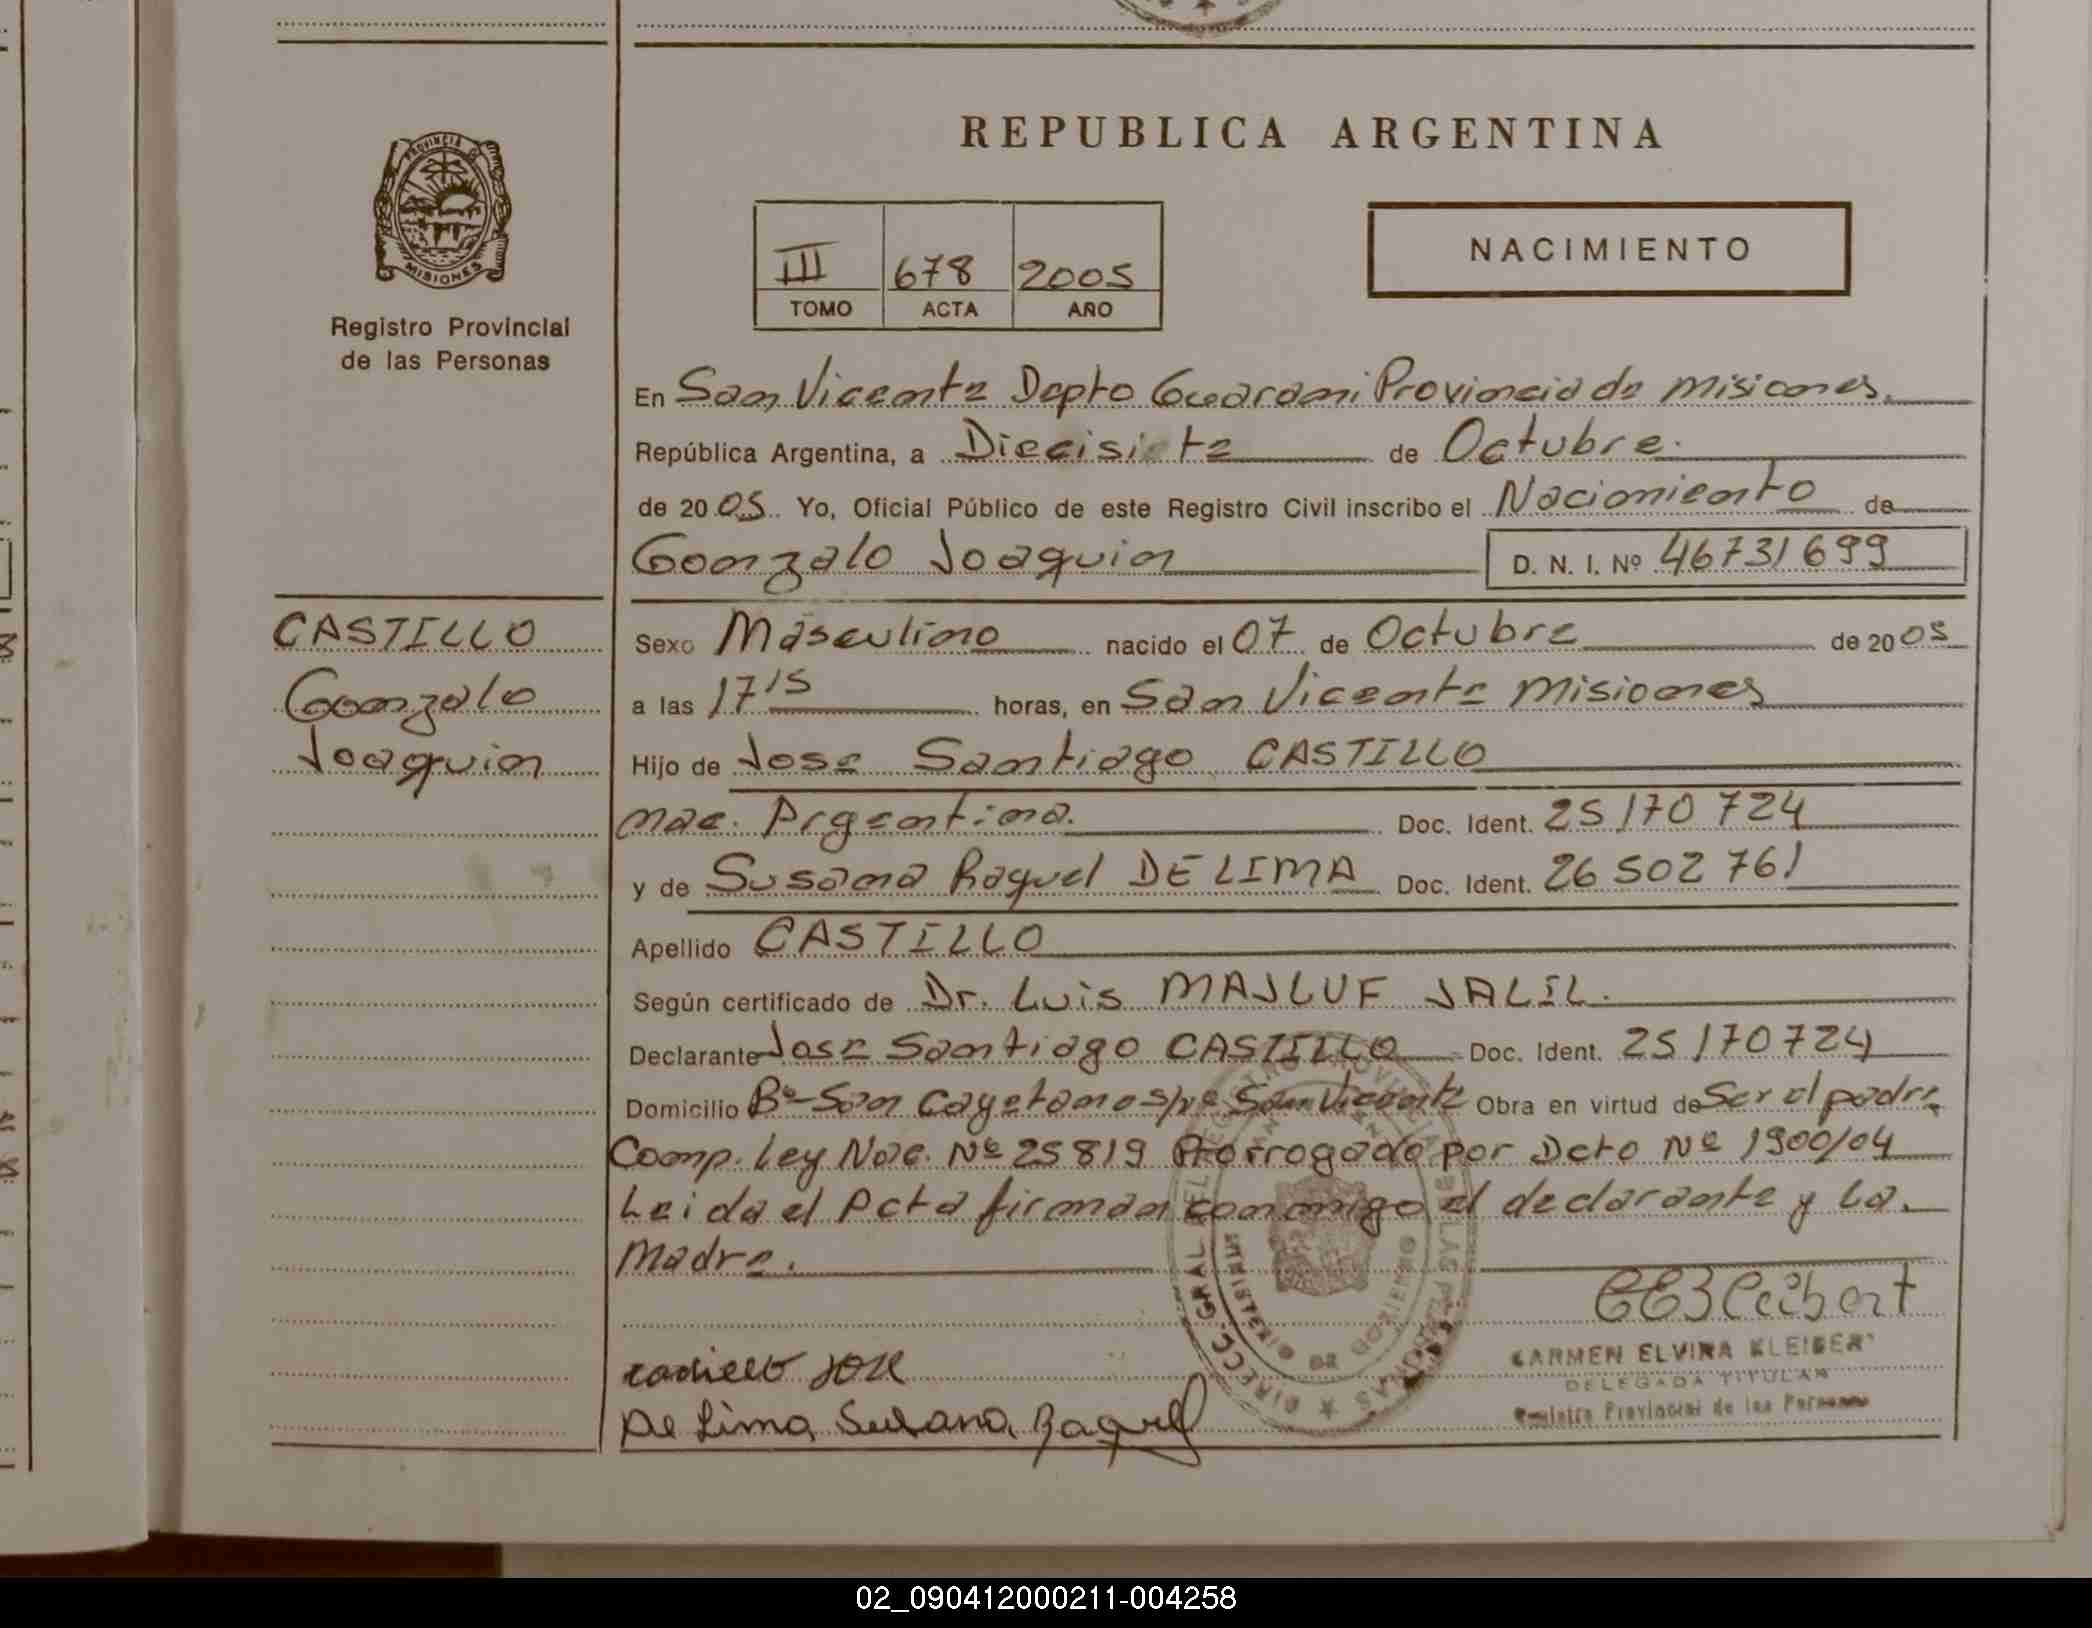 REPUBLICA ARGENTINA
PROVINCIA DE
MISIONES
Registro Provincial
de las Personas
III 678 2005
TOMO ACTA AÑO
NACIMIENTO
En San Vicente Depto Guarani Provincia de Misiones.
República Argentina, a Diecisiete de Octubre.
de 2005 Yo, Oficial Público de este Registro Civil inscribo el Nacimiento de
Gonzalo Joaquin D. N. I. Nº 46731699
CASTILLO
Gonzalo
Joaquin
Sexo Masculino nacido el 07 de Octubre de 2005
a las 17 15 horas, en San Vicente Misiones
Hijo de Jose Santiago CASTILLO
nac. Argentina. Doc. Ident. 25 170 724
y de Susana Raquel DE LIMA Doc. Ident. 26 502 761
Apellido CASTILLO
Según certificado de Dr. Luis MAJLUF JALIL.
Declarante Jose Santiago CASTILLO Doc. Ident. 25 170 724
Domicilio Bº San Cayetano s/nº San Vicente Obra en virtud de Ser el padre
Comp. Ley Nac. Nº 25819 Prorrogado por Dcto Nº 1900/04
Leida el Acta firman conmigo el declarante y la.
Madre.
DIRECC. GRAL DEL REGISTRO PROVINCIAL DE LAS PERSONAS
MINISTERIO DE GOBIERNO
CARMEN ELVIRA KLEIBER
DELEGADA TITULAR
Registro Provincial de las Personas
castillo jose
De Lima Susana Raquel
02_090412000211-004258